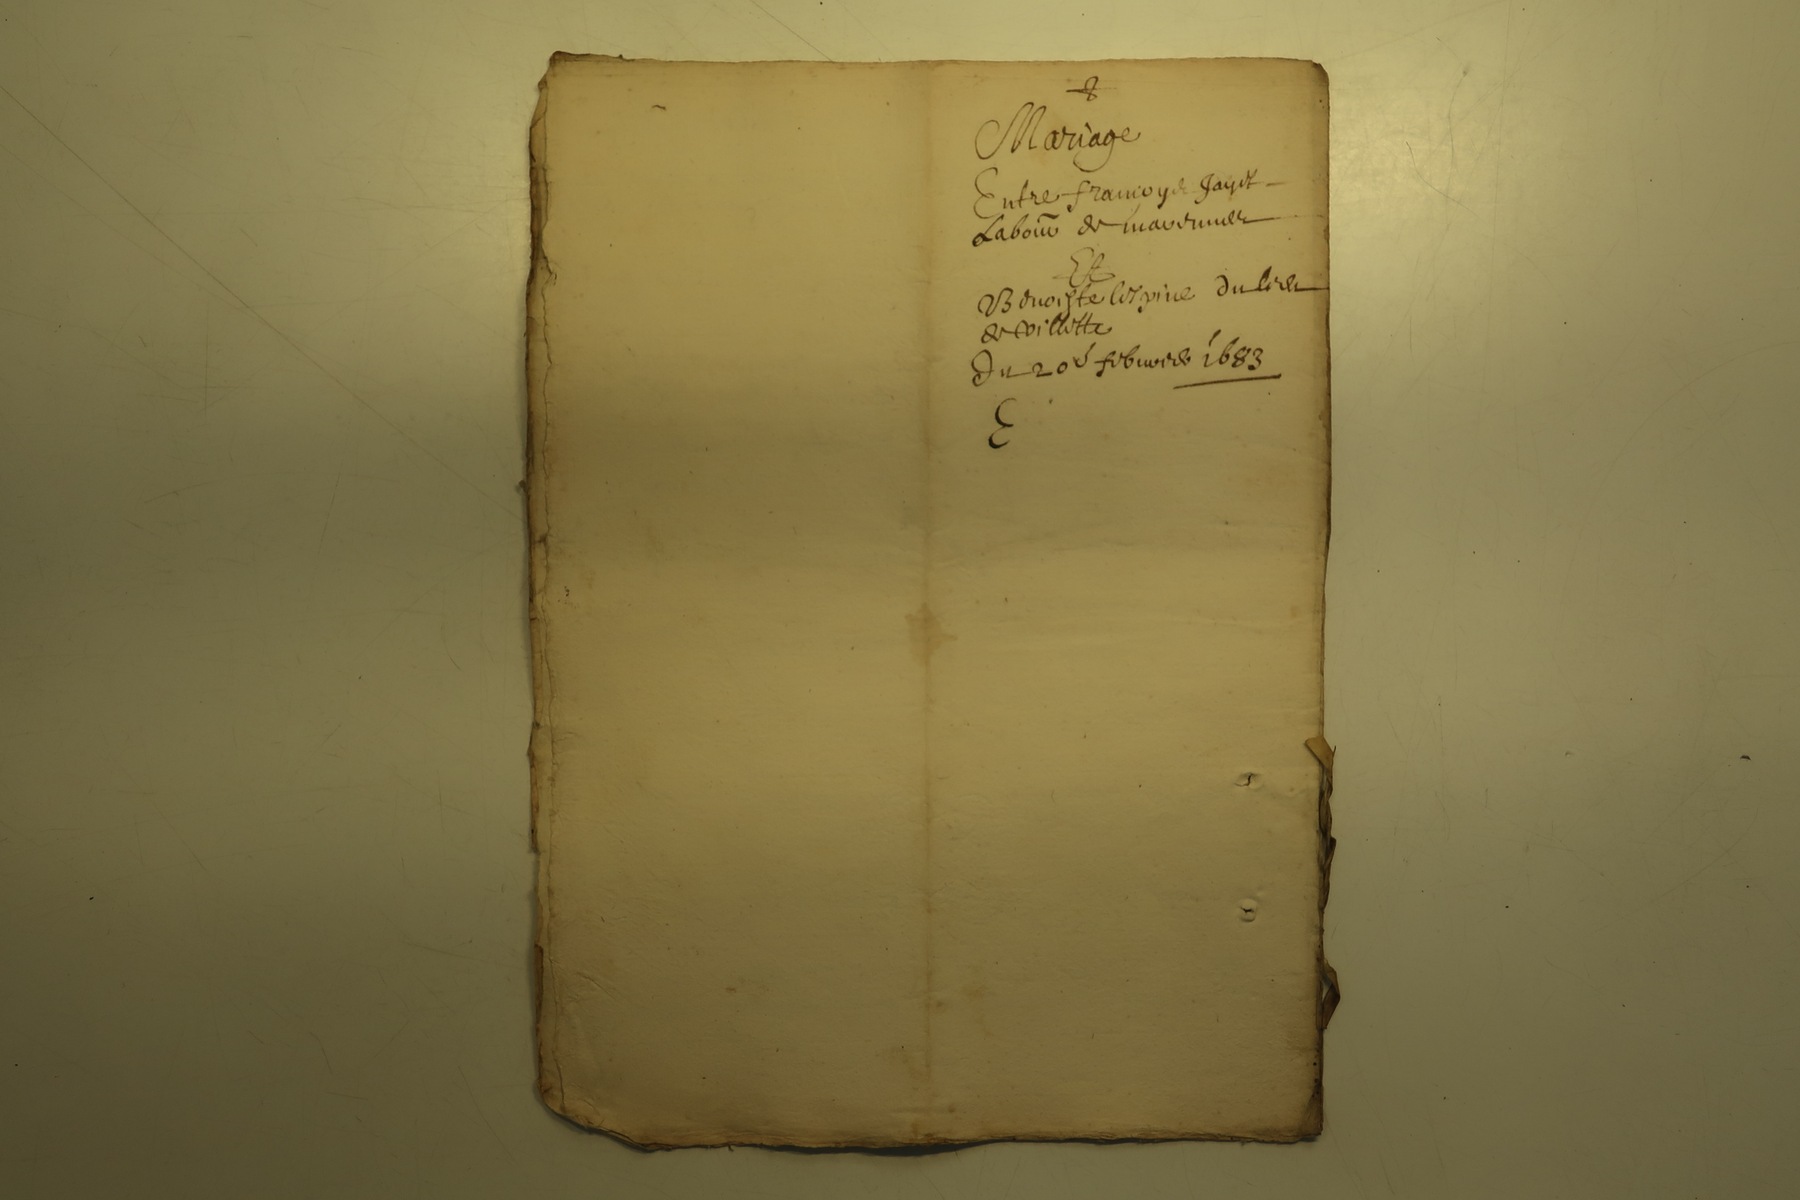 Mariage
Entre francoys Jayet
Labour de
Et
Benoiste lespine du lieu
de villette
Du 20e febvrier 1683
E